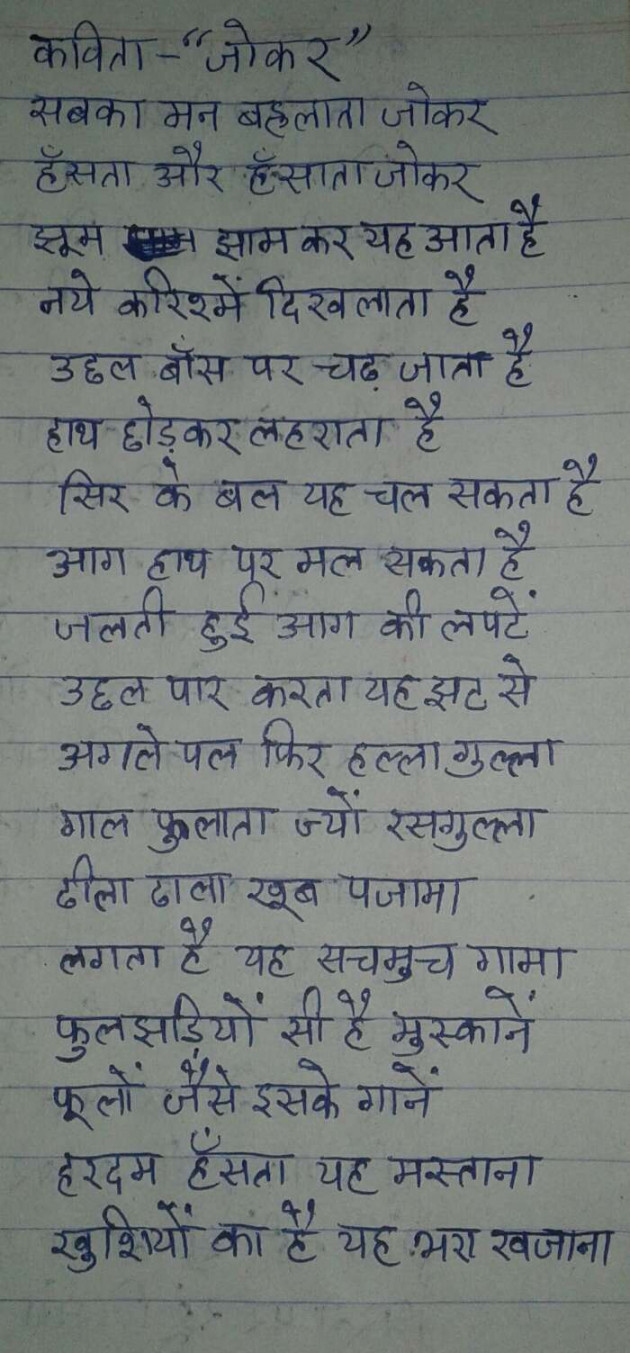 कविता - “जोकर”
सबका मन बहलाता जोकर
हँसता और हँसाता जोकर
झूम झाम कर यह आता है
नये करिश्में दिखलाता है
उछल बाँस पर चढ़ जाता है
हाथ छोड़कर लहराता है
सिर के बल यह चल सकता है
आग हाथ पर मल सकता है
जलती हुई आग की लपटें
उछल पार करता यह झट से
अगले पल फिर हल्ला गुल्ला
गाल फुलाता ज्यों रसगुल्ला
ढीला ढाला खूब पजामा
लगता है यह सचमुच गामा
फुलझडियों सी है मुस्कानें
फूलों जैसे इसके गानें
हरदम हँसता यह मस्ताना
खुशियों का है यह भरा खजाना